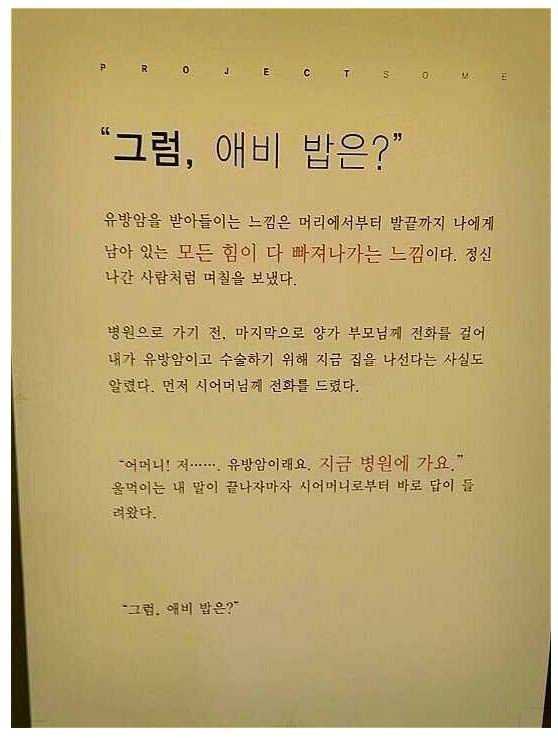 PROJECTSOME
“그럼, 애비 밥은?”
유방암을 받아들이는 느낌은 머리에서부터 발끝까지 나에게
남아 있는 모든 힘이 다 빠져나가는 느낌이다. 정신
나간 사람처럼 며칠을 보냈다.
병원으로 가기 전, 마지막으로 양가 부모님께 전화를 걸어
내가 유방암이고 수술하기 위해 지금 집을 나선다는 사실도
알렸다. 먼저 시어머님께 전화를 드렸다.
“어머니! 저……. 유방암이래요. 지금 병원에 가요.”
울먹이는 내 말이 끝나자마자 시어머니로부터 바로 답이 들
려왔다.
“그럼, 애비 밥은?”